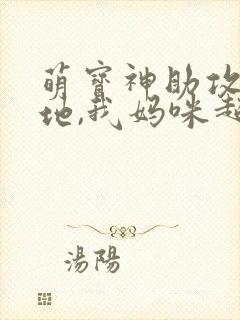 萌寶神助攻
地,我妈咪超
湯陽